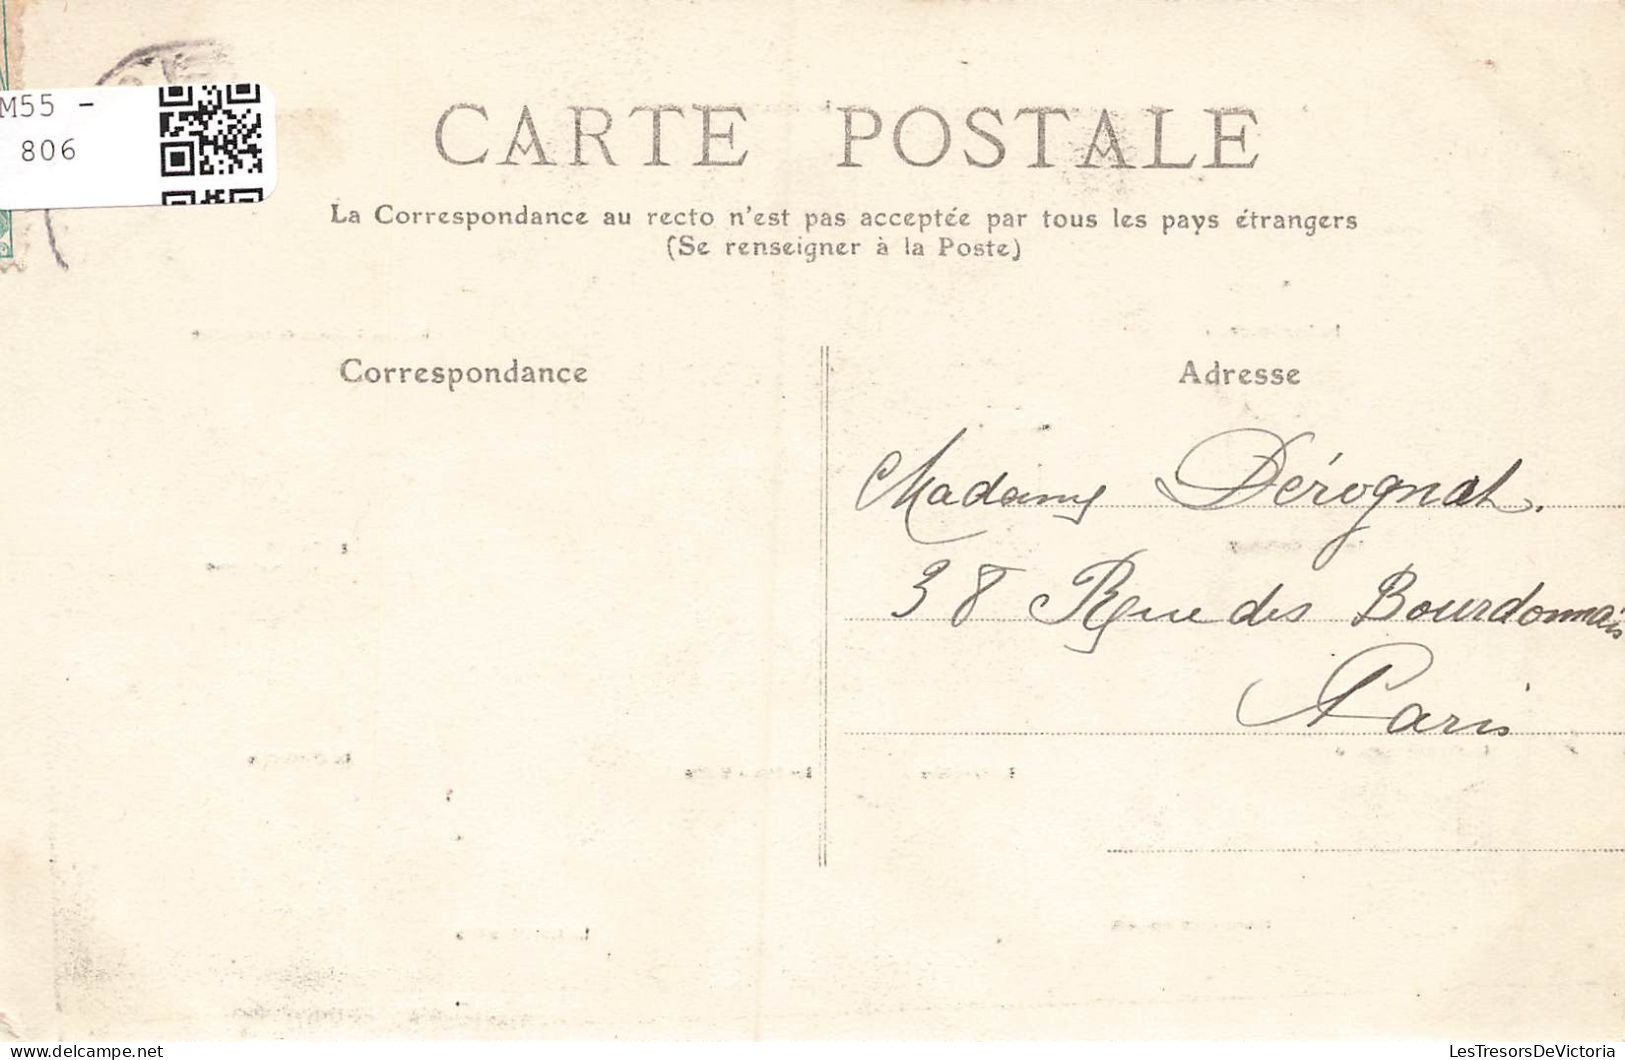 M55 -
806
CARTE POSTALE
La Correspondance au recto n'est pas acceptée par tous les pays étrangers
(Se renseigner à la Poste)
Correspondance
Adresse
Madame Dérognat.
38 Rue des Bourdonnais
Paris
delcampe.net
LesTresorsDeVictoria